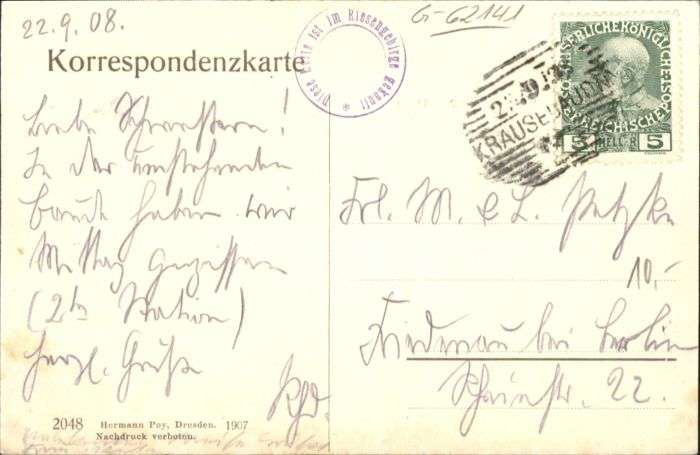 22.9.08.
G-62141
Korrespondenzkarte
Diese Karte ist im Riesengebirge gekauft *
KAISERLICHE KÖNIGLICHE ÖSTERREICHISCHE POST
5 HELLER 5
KRAUSEBAUDEN
Liebe Schwestern!
In der umstehenden
Baude haben wir
Mittag gegessen
(2te Station)
herzl. Grüße
Frl. M. & L. Petzke
10,-
Friedenau bei Berlin
str. 22.
2048 Hermann Poy, Dresden. 1907
Nachdruck verboten.